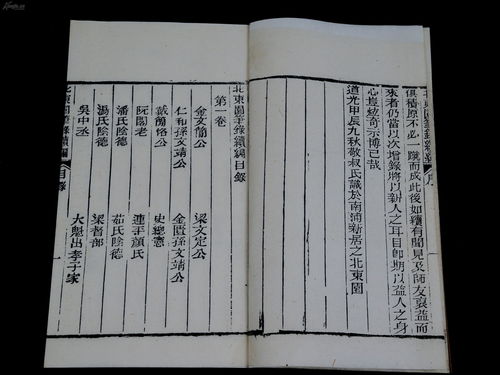 北東園筆錄續編 序
俱積原不必一蹴而成此後如續有聞見及師友裒益而
來者仍當以次增錄將以新人之耳目卽期以益人之身
心豈炫奇示博已哉
道光甲辰九秋敬叔氏識於南浦新居之北東園
北東園筆錄續編目錄
第一卷
金文簡公
梁文定公
仁和孫文靖公
金匱孫文靖公
戴簡恪公
史總憲
阮閣老
連平顏氏
潘氏陰德
茹氏陰德
湯氏陰德
梁都督
吳中丞
大魁出孝子家
北東園筆錄續編 目錄 一